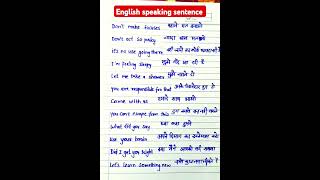 English speaking sentence
Don't make faicles बहाने मत बनाओ
Don't act so pricy ज्यादा भाव मत खाओ
It's no use going there वहाँ जाने का कोई फायदा नहीं है
I'm feeling sleepy मुझे नींद आ रही है
Let me take a shower मुझे नहाने दो
you are responsible for that
Come with us हमारे साथ आओ
you can't escape from this
What did you say क्या कहा तुमने
Use your brain अपने दिमाग का इस्तेमाल करो
Did I get you Right
Let's learn something new